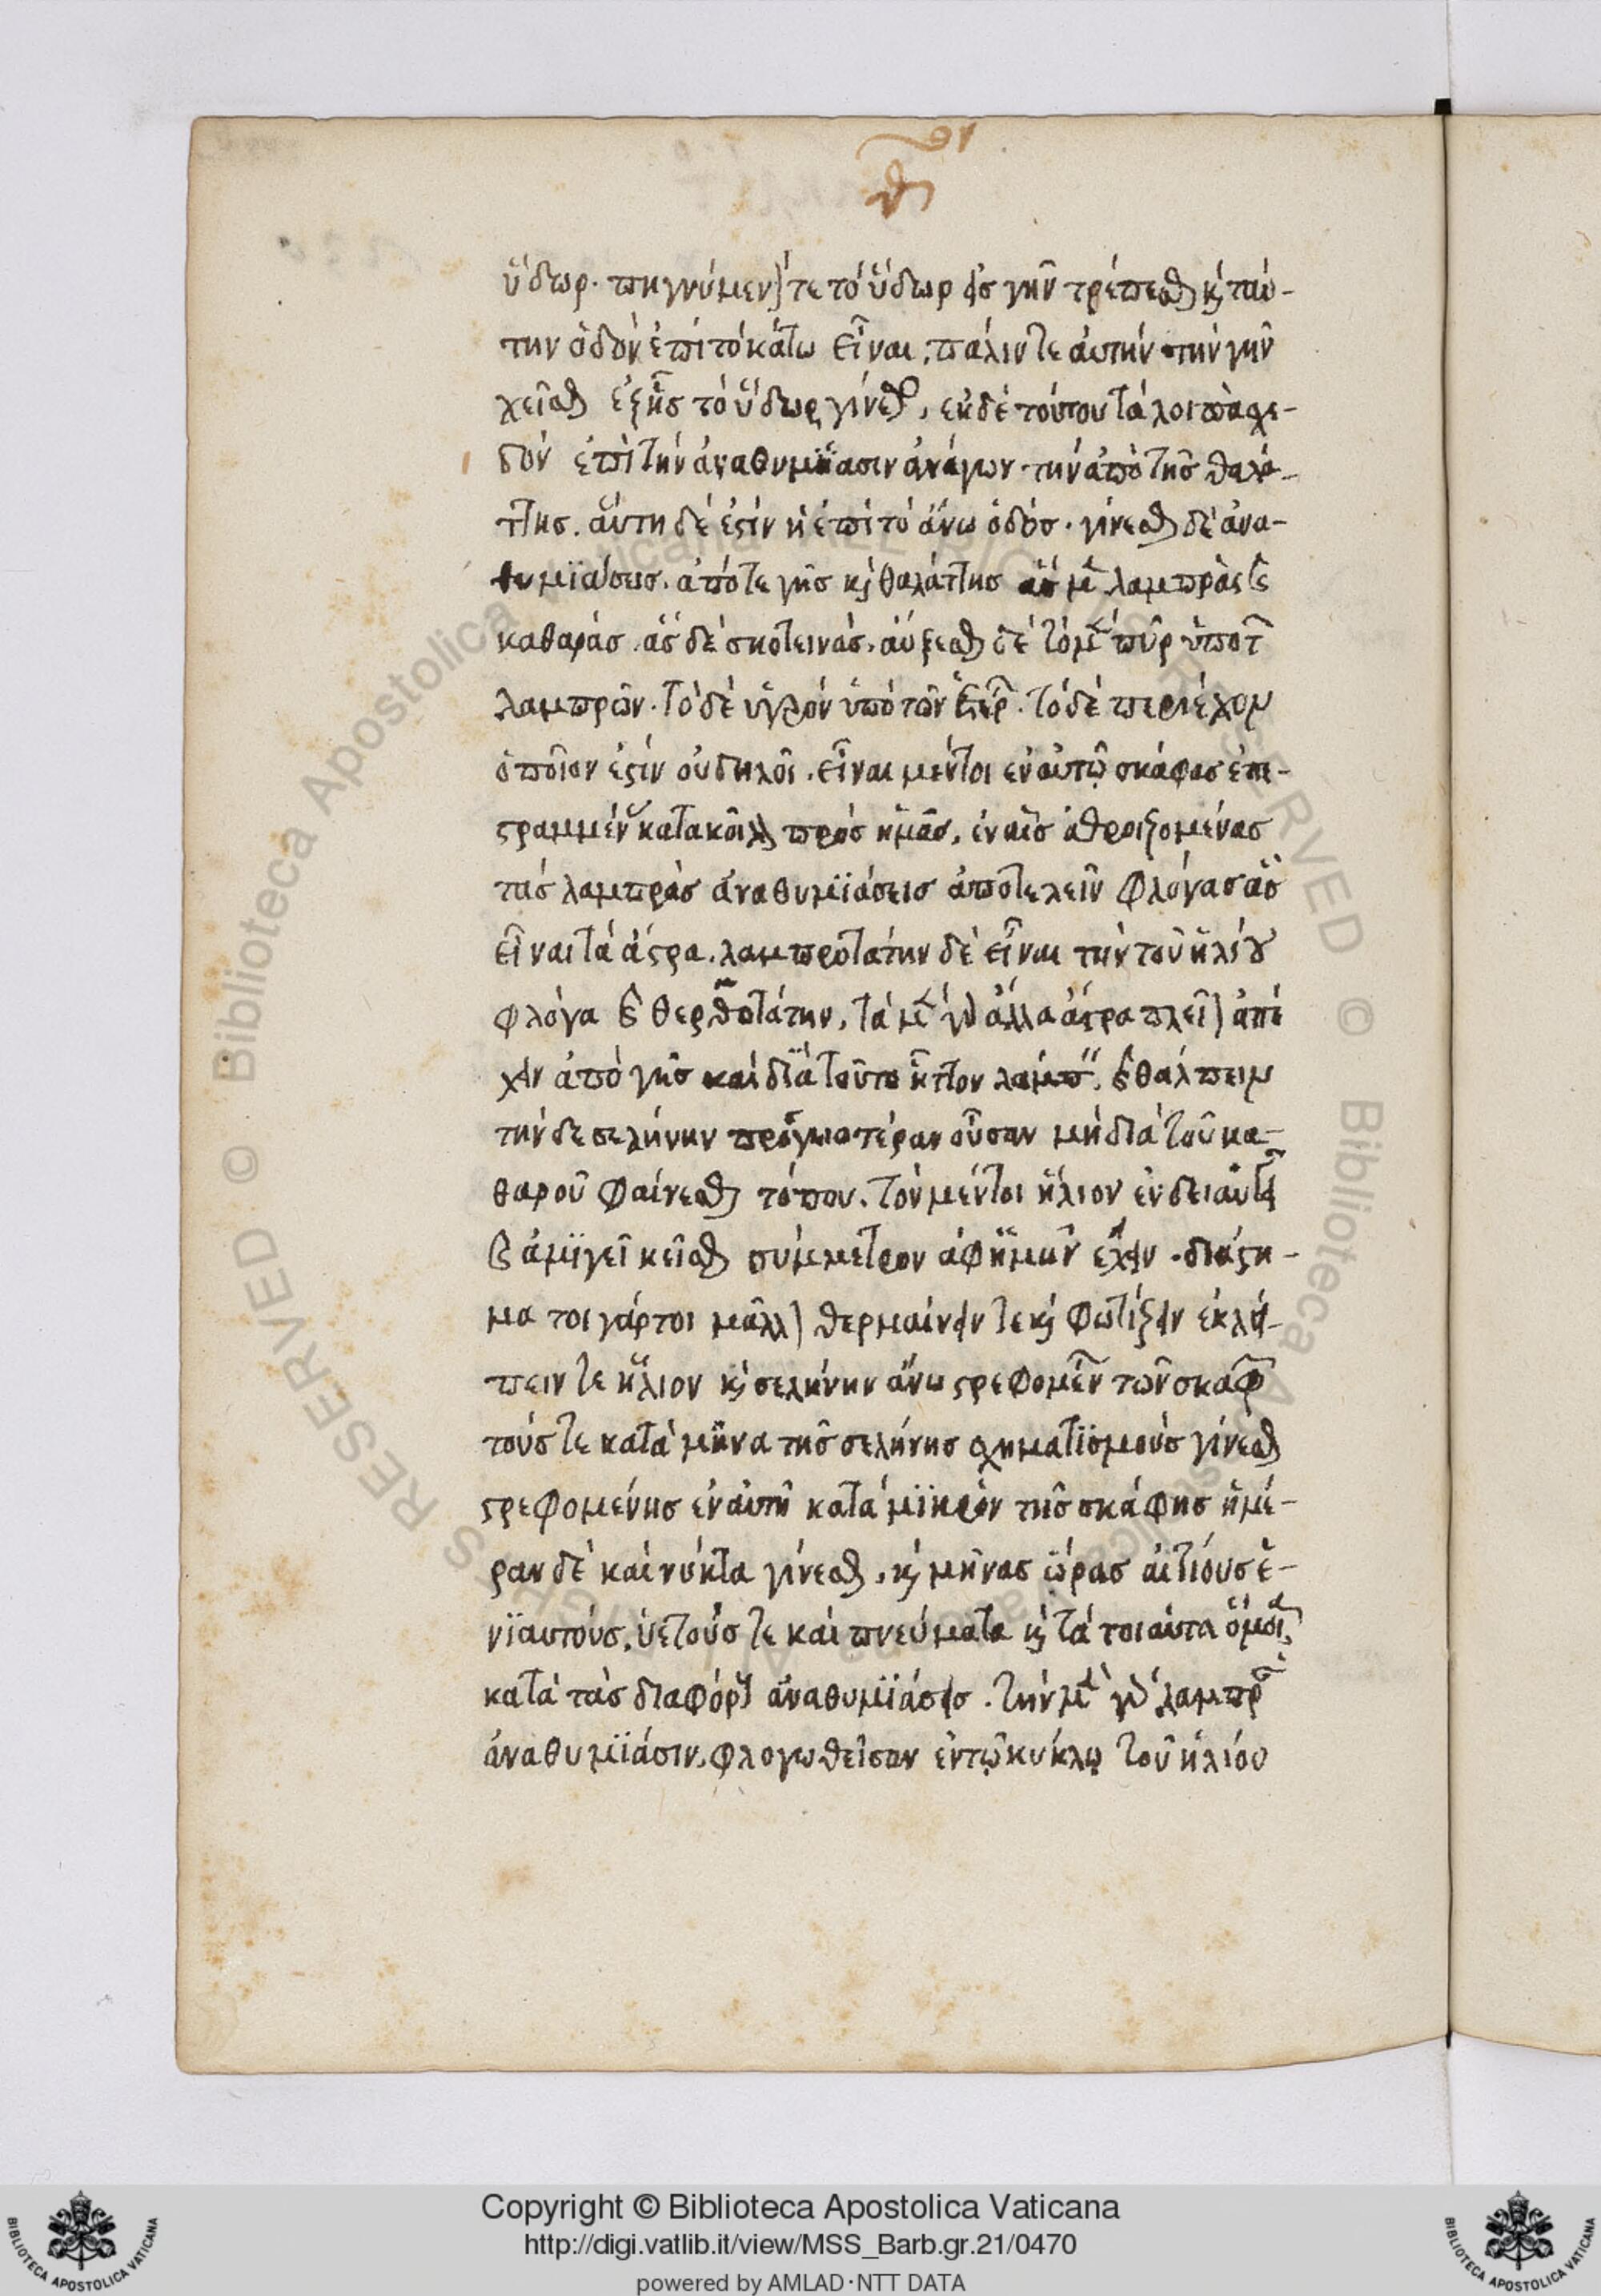 θ
ὕδωρ. πηγνύμενόν τε τὸ ὕδωρ εἰς γῆν τρέπεσθαι κ̀ ταύ-
την ὁδὸν ἐπὶ τὸ κάτω εἶναι, πάλιν τε ἀυτὴν τὴν γῆν
χεῖσθαι ἐξ ἧς τὸ ὕδωρ γίνεσθαι, ἐκ δὲ τούτου τὰ λοιπὰ σχε-
δὸν ἐπὶ τὴν ἀναθυμίασιν ἀνάγων τὴν ἀπὸ τῆς θαλά-
ττης. ἅυτη δέ ἐστιν ἡ ἐπὶ τὸ ἄνω ὁδός. γίνεσθαι δὲ ἀνα-
θυμϊάσεις. ἀπό τε γῆς κ̀ θαλάττης ἃς μὲν λαμπρὰς κ̀
καθαράς. ἃς δὲ σκοτεινάς. ἀύξεσθαι δὲ τὸ μὲν πῦρ ὑπὸ τῶν
λαμπρῶν. τὸ δὲ ὑγρὸν ὑπὸ τῶν ἑτέρων. τὸ δὲ περιέχον
ὁποῖον ἐστὶν οὐ δηλοῖ. εἶναι μέντοι ἐν αὐτῷ σκάφας ἐπε-
στραμμένας κατὰ κοῖλον πρὸς ἡμᾶς, ἐν αἷς ἀθροιζομένας
τὰς λαμπρὰς ἀναθυμϊάσεις ἀποτελεῖν φλόγας ἃς
εἶναι τὰ ἄστρα. λαμπροτάτην δὲ εἶναι τὴν τοῦ ἡλίου
φλόγα κ̀ θερμοτάτην, τὰ μὲν γὰρ ἄλλα ἄστρα πλεῖον ἀπέ
χειν ἀπὸ γῆς καὶ διὰ τοῦτο ἧττον λάμπειν κ̀ θάλπειν
τὴν δὲ σελήνην προσγειοτέραν οὖσαν μὴ διὰ τοῦ κα-
θαροῦ φαίνεσθαι τόπου. τὸν μέντοι ἥλιον ἐν δειαυγεῖ
κ̀ ἀμϊγεῖ κεῖσθαι σύμμετρον ἀφ' ἡμῶν ἔχειν διάστη-
μα τοιγάρτοι μᾶλλον θερμαίνειν τε κ̀ φωτίζειν ἐκλεί-
πειν τε ἥλιον κ̀ σελήνην ἄνω στρεφομένων τῶν σκαφῶν
τούς τε κατὰ μῆνα τῆς σελήνης σχηματϊσμοὺς γίνεσθαι
στρεφομένης ἐν ἀυτῇ κατὰ μϊκρὸν τῆς σκάφης ἡμέ-
ραν δὲ καὶ νύκτα γίνεσθαι, κ̀ μῆνας ὥρας αἰτίους ἐ-
νϊαυτούς, ὑετούς τε καὶ πνεύματα κ̀ τὰ τοιαῦτα ὅμοια
κατὰ τὰς διαφόρους ἀναθυμϊάσεις. τὴν μὲν γὰρ λαμπρὰν
ἀναθυμϊάσιν, φλογωθεῖσαν ἐν τῷ κύκλῳ τοῦ ἡλίου
Copyright © Biblioteca Apostolica Vaticana
http://digi.vatlib.it/view/MSS_Barb.gr.21/0470
powered by AMLAD·NTT DATA